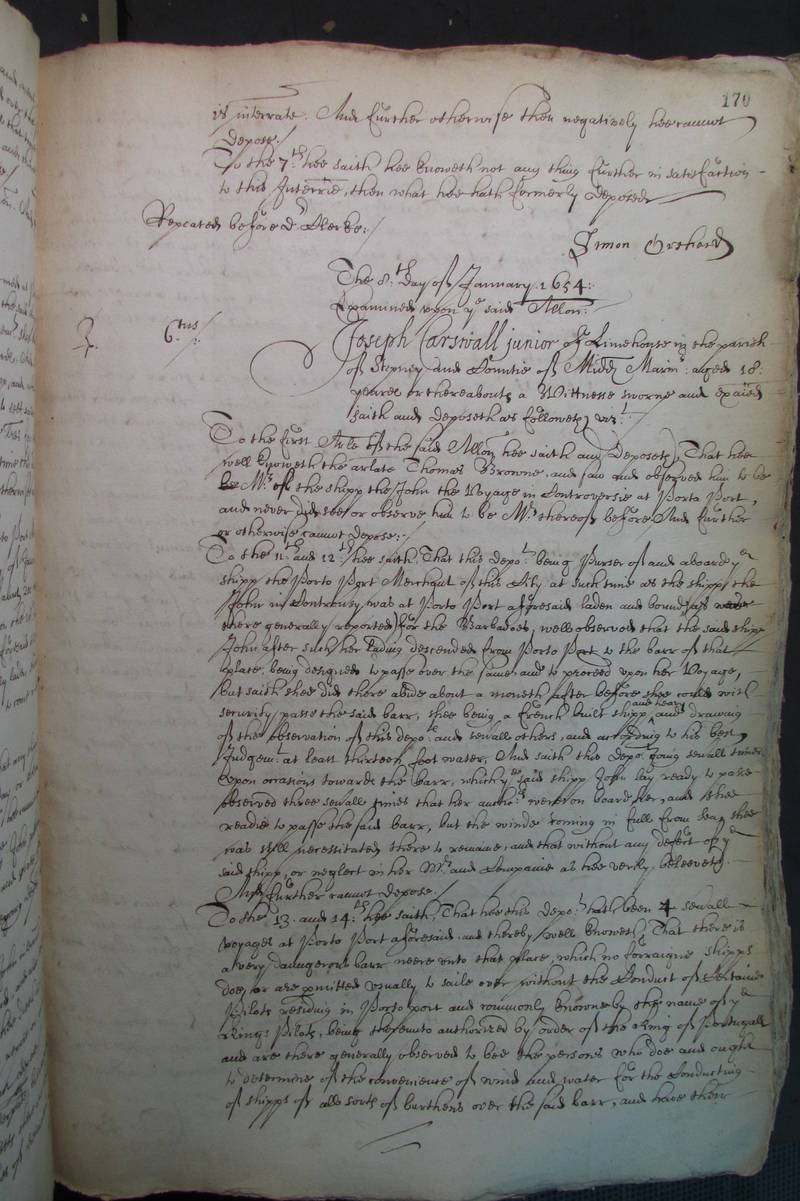 170
is interrate. And further otherwise then negatively hee cannot
depose./
To the 7th. hee saith hee knoweth not any thing further in satisfaction
to this Interrie, then what hee hath formerly deposed
Repeated before Dr Clerke:/
Simon Orchard
The 8th. day of January. 1654:
Examined upon ye said Allon:
J. 6tus/:
Joseph Carswall junior of Limehouse in the parish
of Stepney and Countie of Midd Marinr: aged 18:
yeares or thereabouts a Wittnesse sworne and exaied
saith and deposeth as followeth vizt.
To the first Arle of the said Allon hee saith and deposeth, That hee
well knoweth the arlate Thomas Browne, and saw and observed him to be
Mr of the shipp the John the Voyage in Controversie at Porto Port,
and never did see or observe him to be Mr thereof before And further
or otherwise cannot depose:/
To the 11th and 12th hee saith, That this depot being Purser of and aboard ye
shipp the Porto Port Merchant of this City at such time as the shipp the
John in Controversy was at Porto Port aforesaid laden and bound (as
there generally reported) for the Barbadoes, well observed that the said shipp
John after such her lading descended from Porto Port to the barr of that
place, being designed to passe over the same and to proceed upon her Voyage,
but saith shee did there abide about a moneth before shee could with
security passe the said barr, shee being a French built shipp and drawing
of the observation of this depot and severall others, and according to his best
Judgemt. at least thirteen foot water, And saith this depot going severall times
upon occasions towards the barr, which ye said shipp John lay ready to passe
observed three severall times that her anchrs were on board her, and shee
readie to passe the said barr, but the winde coming in full from sea, shee
was still necessitated there to remaine, and that without any defect of ye
said shipp, or neglect in her Mr and Companie as hee verily beleeveth.
And further cannot depose./
To the 13. and 14th. hee saith, That hee this depot hath been 4 severall
voyages at Porto Port aforesaid and thereby well knoweth That there is
a very dangerous barr neere unto that place, which no forraigne shipps
doe, or are pmitted usually to saile over without the Conduct of Certaine
Pilots residing in Porto port and commonly knowne by the name of ye
Kings Pilots, being thereunto authorized by order of the King of Portugall
and are there generally observed to bee the persons who doe and ought
to determine of the convenience of wind and water for the Conducting
of shipps of all sorts of burthens over the said barr, and have their